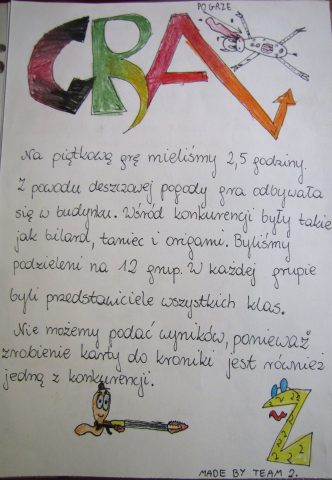 PO GRZE
CRAZ
Na piątkową grę mieliśmy 2,5 godziny.
Z powodu deszczowej pogody gra odbywała
się w budynku. Wśród konkurencji były takie
jak bilard, taniec i origami. Byliśmy
podzieleni na 12 grup. W każdej grupie
byli przedstawiciele wszystkich klas.
Nie możemy podać wyników, ponieważ
zrobienie karty do kroniki jest również
jedną z konkurencji.
MADE BY TEAM 2.